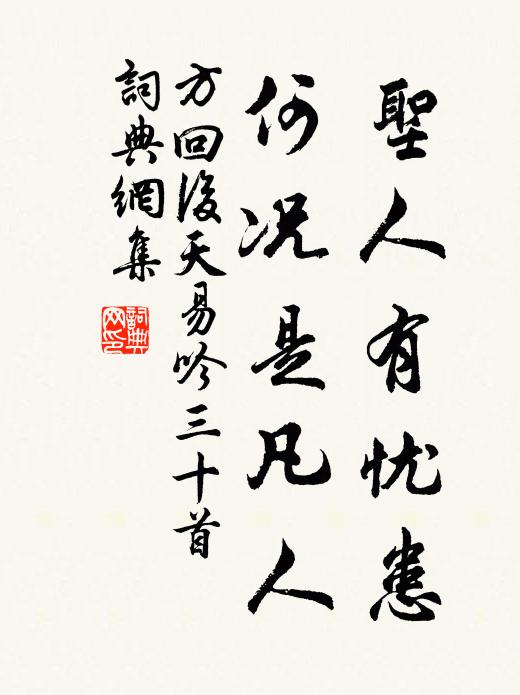 聖人有忧患
何况是凡人
方回後天易吟三十首
詞典網集
詞典
网印